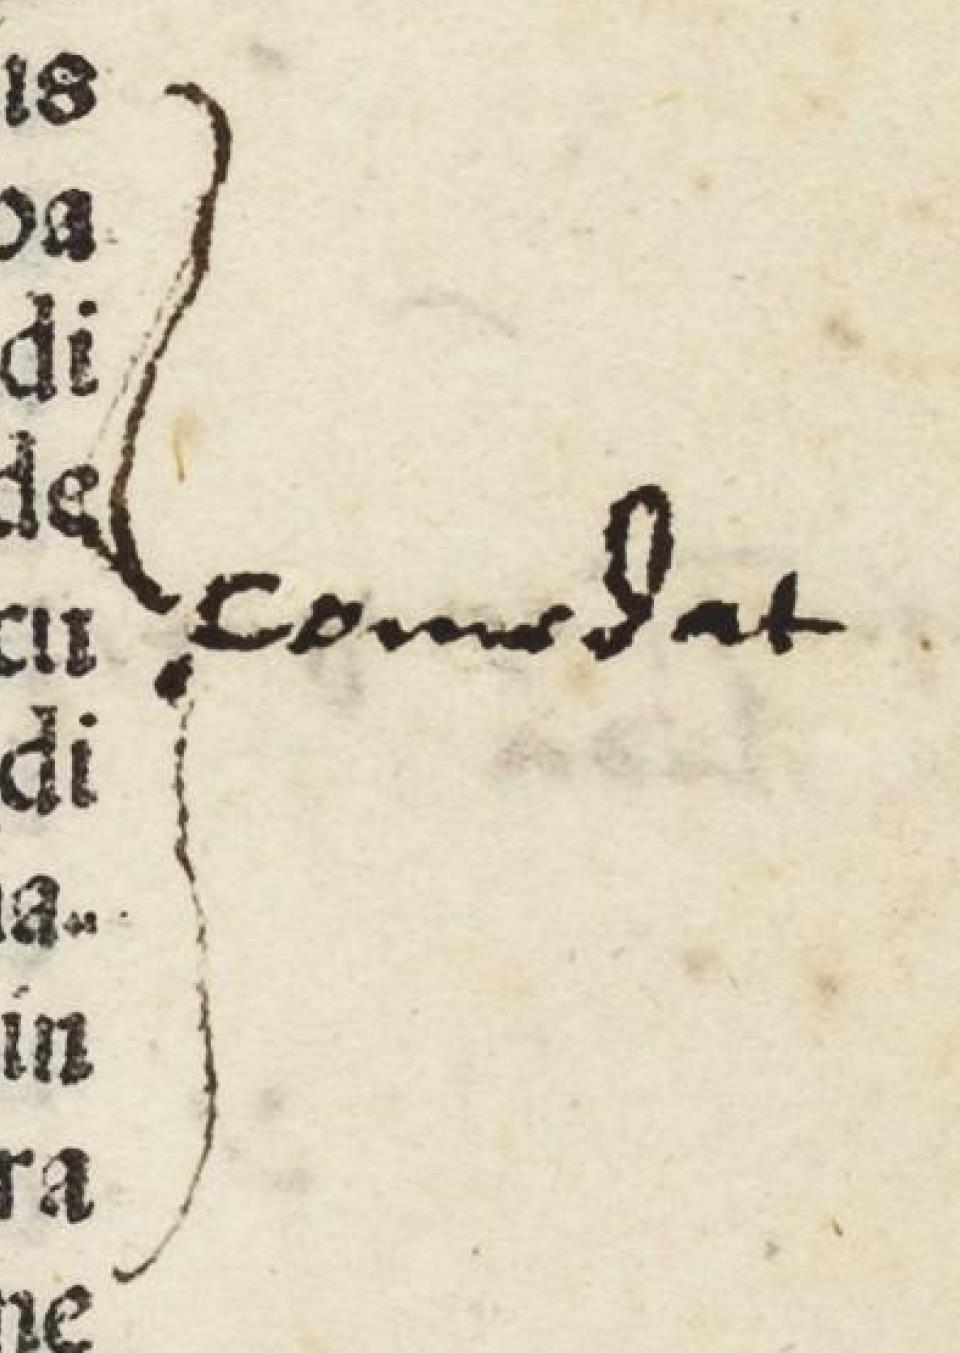 is
pa
di
de
comedat
cu
di
na.
in
ra
ne